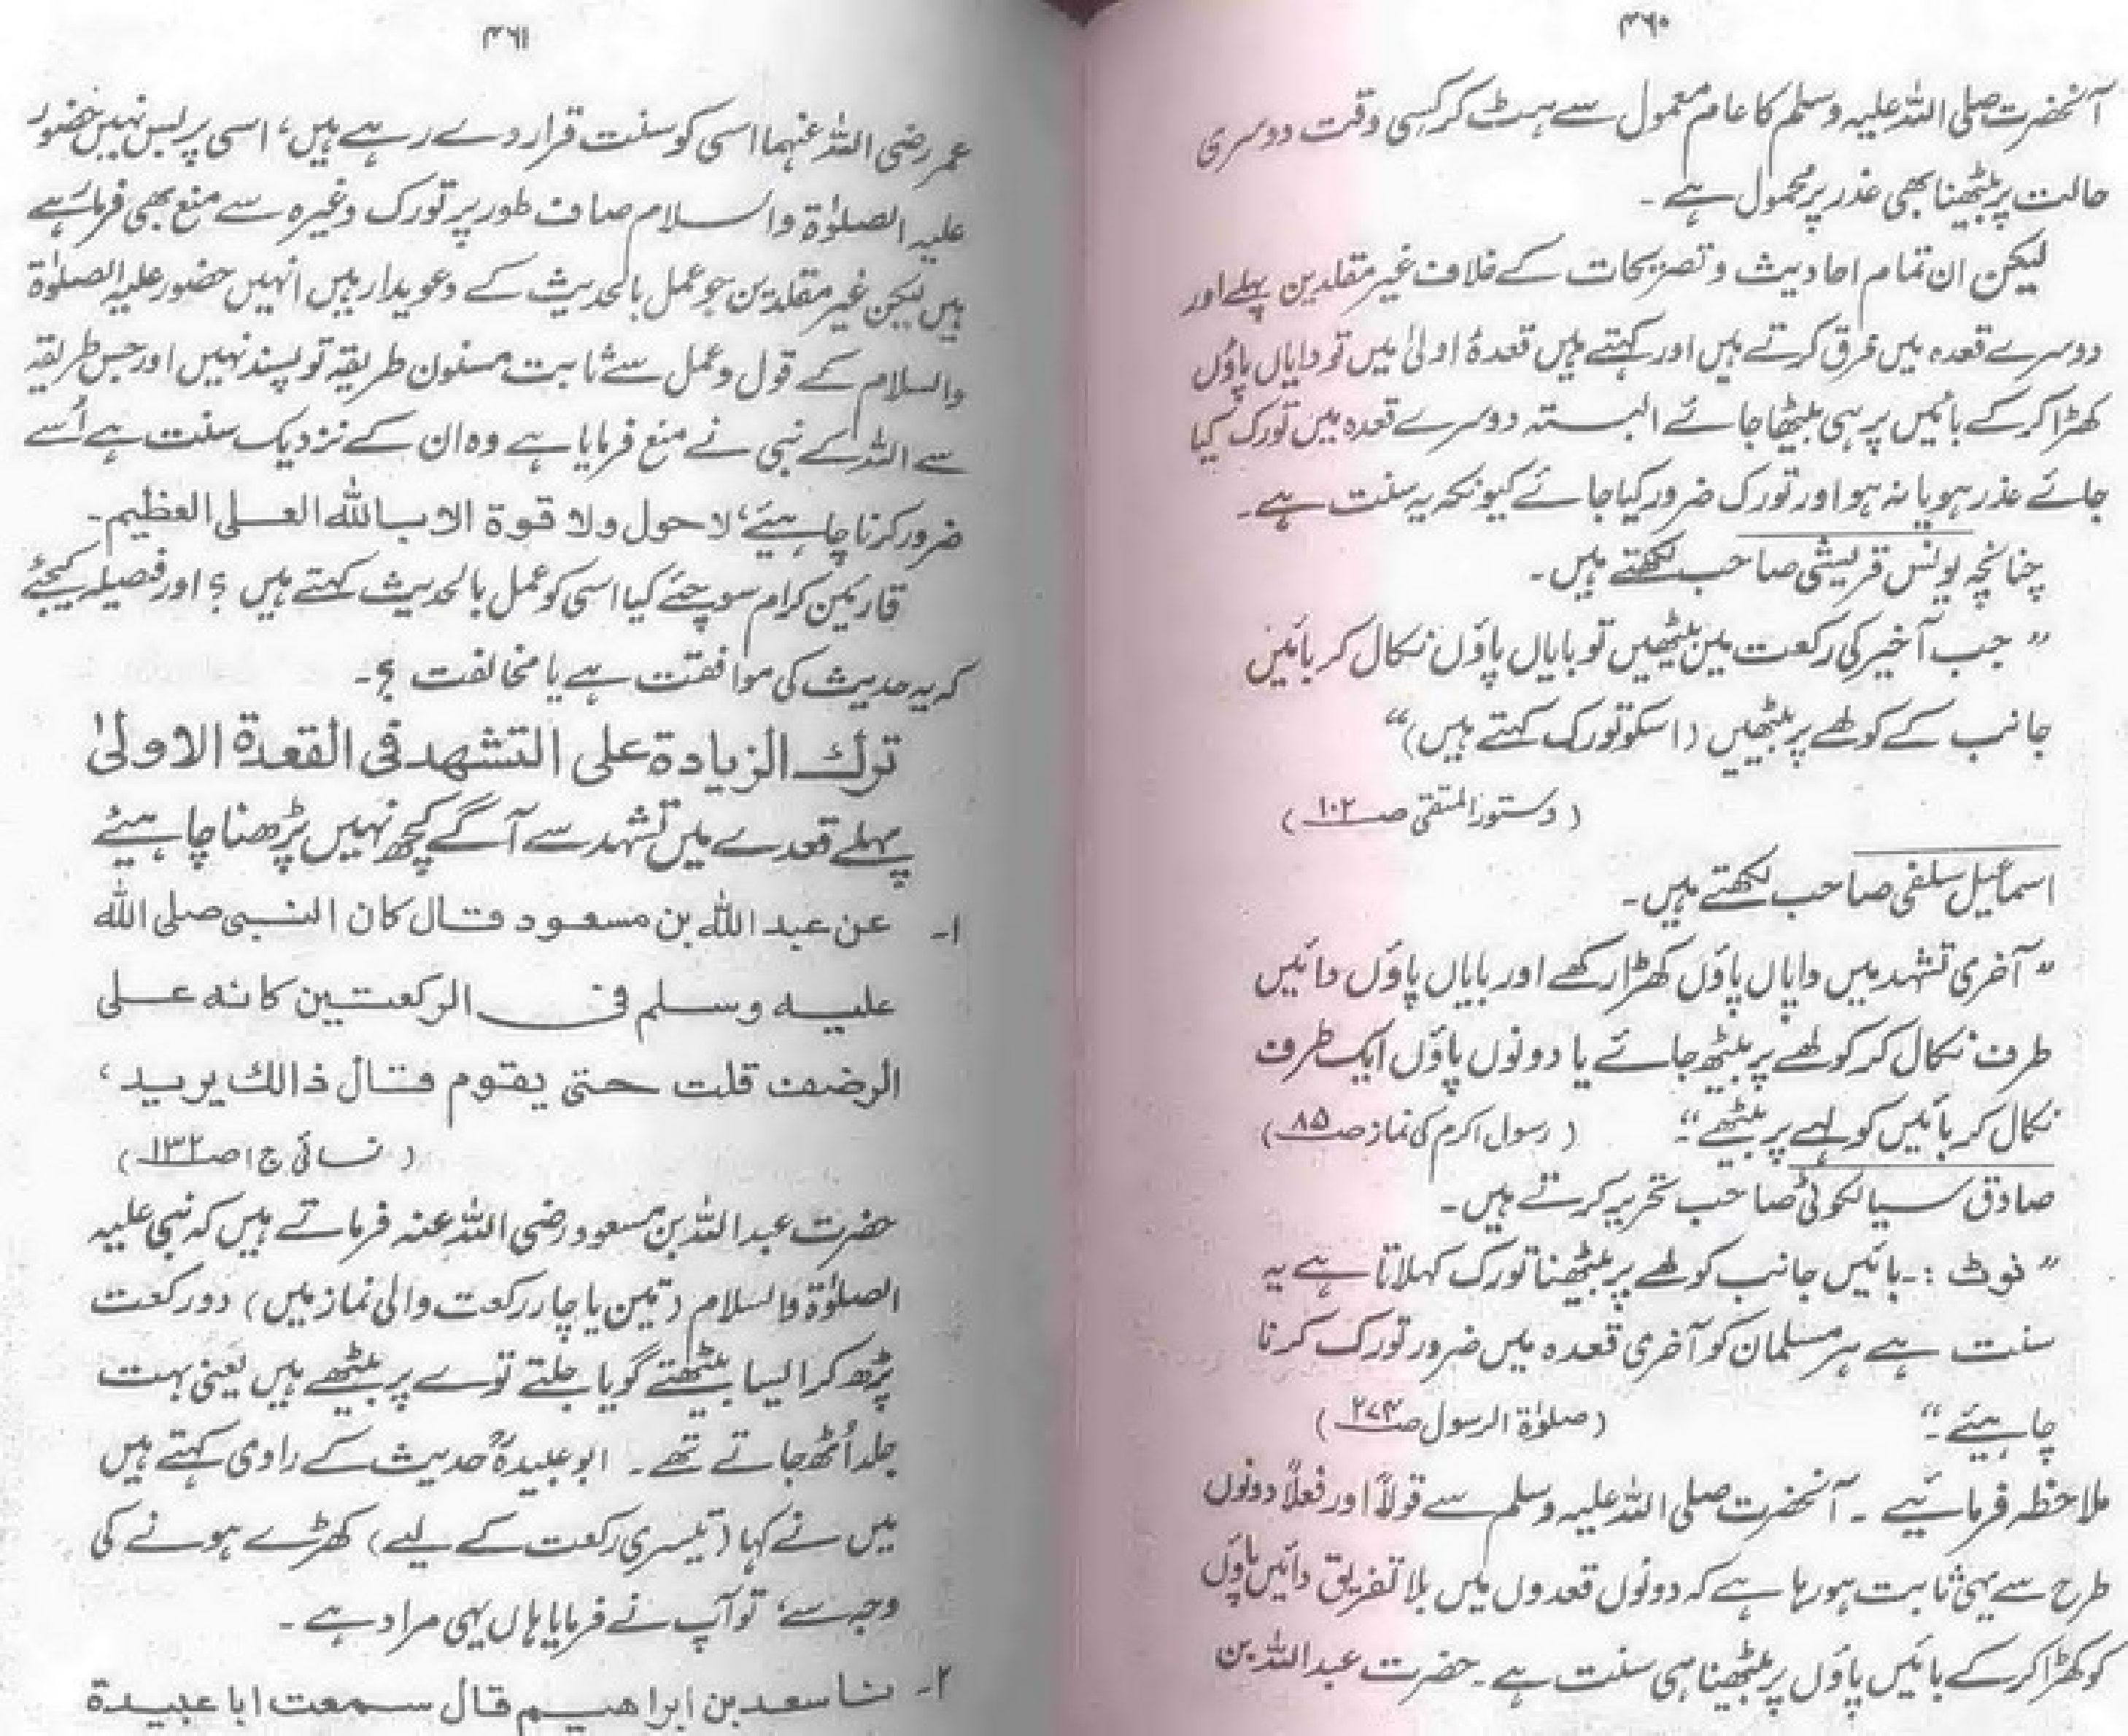 ۴۶۰
آنحضرت صلی اللہ علیہ وسلم کا عام معمول سے ہٹ کر کسی وقت دوسری
حالت پر بیٹھنا بھی عذر پر محمول ہے ۔
لیکن ان تمام احادیث و تصریحات کے خلاف غیر مقلدین پہلے اور
دوسرے قعدہ میں فرق کرتے ہیں اور کہتے ہیں قعدۂ اولیٰ میں تو دایاں پاؤں
کھڑا کرکے بائیں پر ہی بیٹھا جائے البتہ دوسرے قعدہ میں تورک کیا
جائے عذر ہو یا نہ ہو اور تورک ضرور کیا جائے کیونکہ یہ سنت ہے ۔
چنانچہ یونس قریشی صاحب لکھتے ہیں ۔
” جب آخیر کی رکعت میں بیٹھیں تو بایاں پاؤں نکال کر بائیں
جانب کے کولھے پر بیٹھیں (اسکو تورک کہتے ہیں) “
( دستور المتقی صـ ۱۰۲ )
اسماعیل سلفی صاحب لکھتے ہیں ۔
” آخری تشہد میں دایاں پاؤں کھڑا رکھے اور بایاں پاؤں دائیں
طرف نکال کر کولھے پر بیٹھ جائے یا دونوں پاؤں ایک طرف
نکال کر بائیں کولہے پر بیٹھے “۔ ( رسول اکرم کی نماز صـ ۸۵ )
صادق سیالکوٹی صاحب تحریر کرتے ہیں ۔
” نوٹ :۔ بائیں جانب کولھے پر بیٹھنا تورک کہلاتا ہے یہ
سنت ہے ہر مسلمان کو آخری قعدہ میں ضرور تورک کرنا
چاہیئے ۔“ ( صلوٰۃ الرسول صـ ۲۷۴ )
ملاحظہ فرمائیے ۔ آنحضرت صلی اللہ علیہ وسلم سے قولاً اور فعلاً دونوں
طرح سے یہی ثابت ہورہا ہے کہ دونوں قعدوں میں بلا تفریق دائیں پاؤں
کو کھڑا کرکے بائیں پاؤں پر بیٹھنا ہی سنت ہے ۔ حضرت عبد اللہ بن
۴۶۱
عمر رضی اللہ عنہما اسی کو سنت قرار دے رہے ہیں، اسی پر بس نہیں حضور
علیہ الصلوٰۃ والسلام صاف طور پر تورک وغیرہ سے منع بھی فرما رہے
ہیں لیکن غیر مقلدین جو عمل بالحدیث کے دعویدار ہیں انہیں حضور علیہ الصلوٰۃ
والسلام کے قول و عمل سے ثابت مسنون طریقہ تو پسند نہیں اور جس طریقہ
سے اللہ کے نبی نے منع فرمایا ہے وہ ان کے نزدیک سنت ہے اُسے
ضرور کرنا چاہیئے، لا حول ولا قوۃ الا باللہ العلی العظیم ۔
قارئین کرام سوچئے کیا اسی کو عمل بالحدیث کہتے ہیں ؟ اور فیصلہ کیجئے
کہ یہ حدیث کی موافقت ہے یا مخالفت ؟ ۔
ترك الزيادة على التشهد فى القعدة الاولىٰ
پہلے قعدے میں تشہد سے آگے کچھ نہیں پڑھنا چاہیئے
۱۔ عن عبد اللہ بن مسعود قال کان النبی صلی اللہ
علیہ وسلم فی الرکعتین کانہ علی
الرضف قلت حتی یقوم قال ذالک یرید،
( نسائی ج۱ صـ ۱۳۲ )
حضرت عبد اللہ بن مسعود رضی اللہ عنہ فرماتے ہیں کہ نبی علیہ
الصلوٰۃ والسلام (تین یا چار رکعت والی نماز میں) دو رکعت
پڑھ کر ایسا بیٹھتے گویا جلتے توے پر بیٹھے ہیں یعنی بہت
جلد اُٹھ جاتے تھے ۔ ابو عبیدہؒ حدیث کے راوی کہتے ہیں
میں نے کہا (تیسری رکعت کے لیے) کھڑے ہونے کی
وجہ سے، تو آپ نے فرمایا ہاں یہی مراد ہے ۔
۲۔ نا سعد بن ابراھیم قال سمعت ابا عبیدة